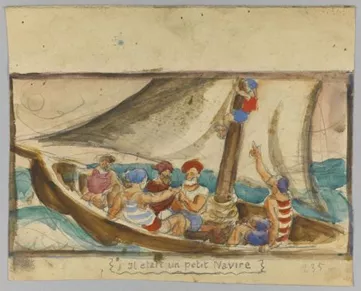 Il etait un petit Navire
235